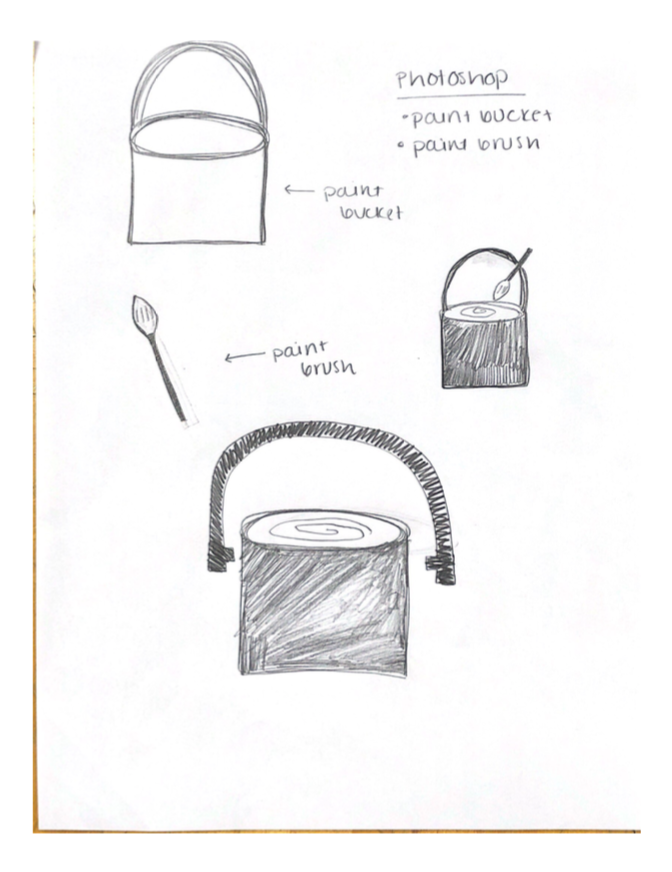 Photoshop
• paint bucket
• paint brush
← paint
bucket
← paint
brush